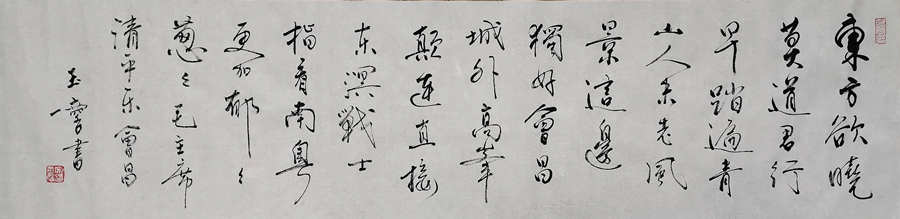 東方欲曉
莫道君行
早踏遍青
山人未老風
景這邊
獨好會昌
城外高峯
顛連直接
东溟戰士
指看南粤
更加郁々
蔥々毛主席
清平乐會昌
書